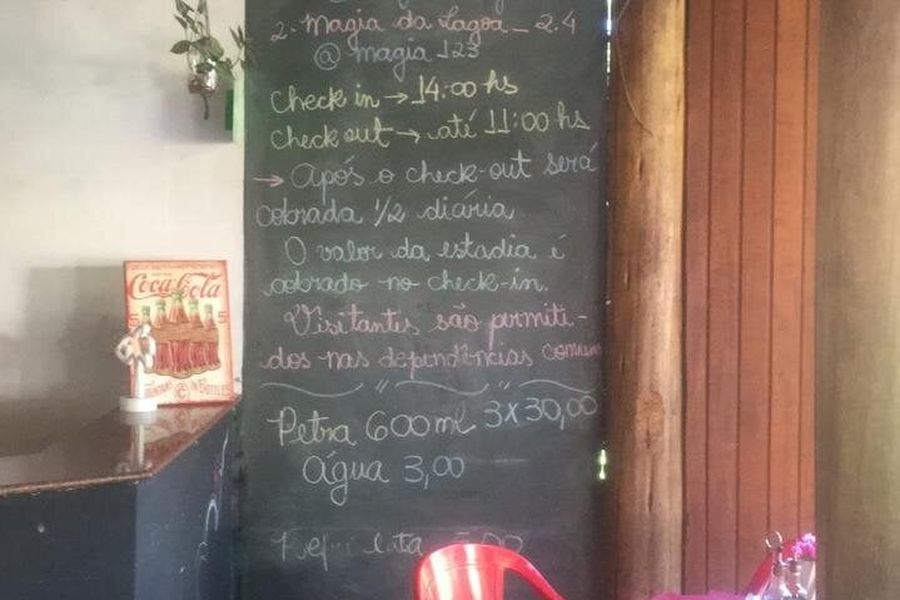 2. Magia da Lagoa_2.4
@magia123
Check in → 14:00 hs
Check out → até 11:00 hs
→ Após o check-out será
cobrada 1/2 diária
O valor da estadia é
cobrado no check-in.
Visitantes são permiti-
dos nas dependências comuns
Petra 600ml 3x30,00
Água 3,00
lata
Coca-Cola
5
5
IN BOTTLES